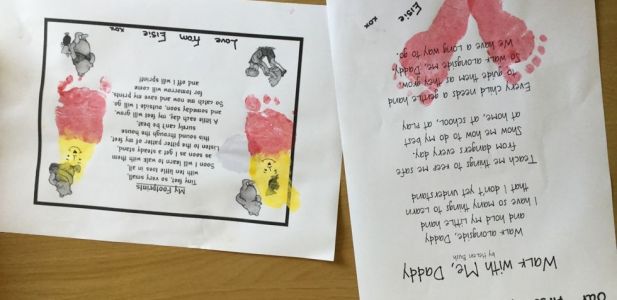 Our
Walk with Me, Daddy
by Helen Bush
Walk alongside, Daddy
and hold my little hand
I have so many things to learn
that I don't yet understand
Teach me things to keep me safe
from dangers every day.
Show me how to do my best
at home, at school, at play
Every child needs a gentle hand
To guide them as they grow.
So walk alongside me, Daddy,
We have a long way to go.
Elsie xox
My Footprints
Tiny, feet, so very small,
with ten little toes in all,
Soon I will learn to walk with them
as soon as I get a steady stand.
Listen to the pitter patter of my feet,
this sound through the house
surely can't be beat.
A little each day, my feet will grow,
and someday soon, outside I will go.
So catch me now and save my prints
for tomorrow will come
and off I will sprint!
Love from Elsie xox